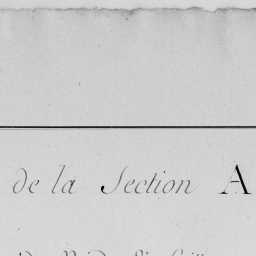 de la Section A